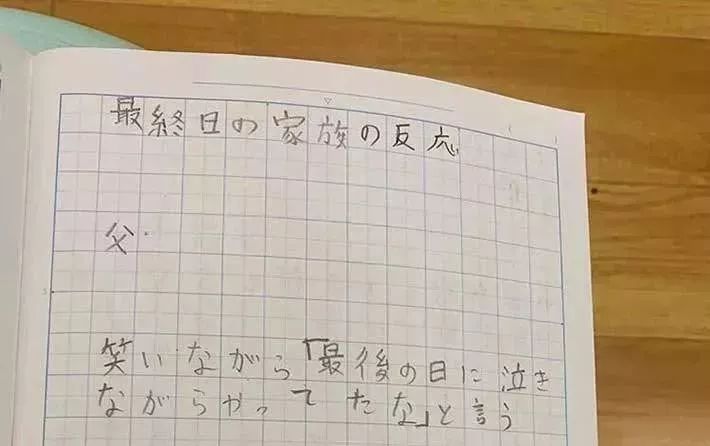 最終日の家族の反応
父・
笑いながら「最後の日に泣き
ながらやってたな」と言う